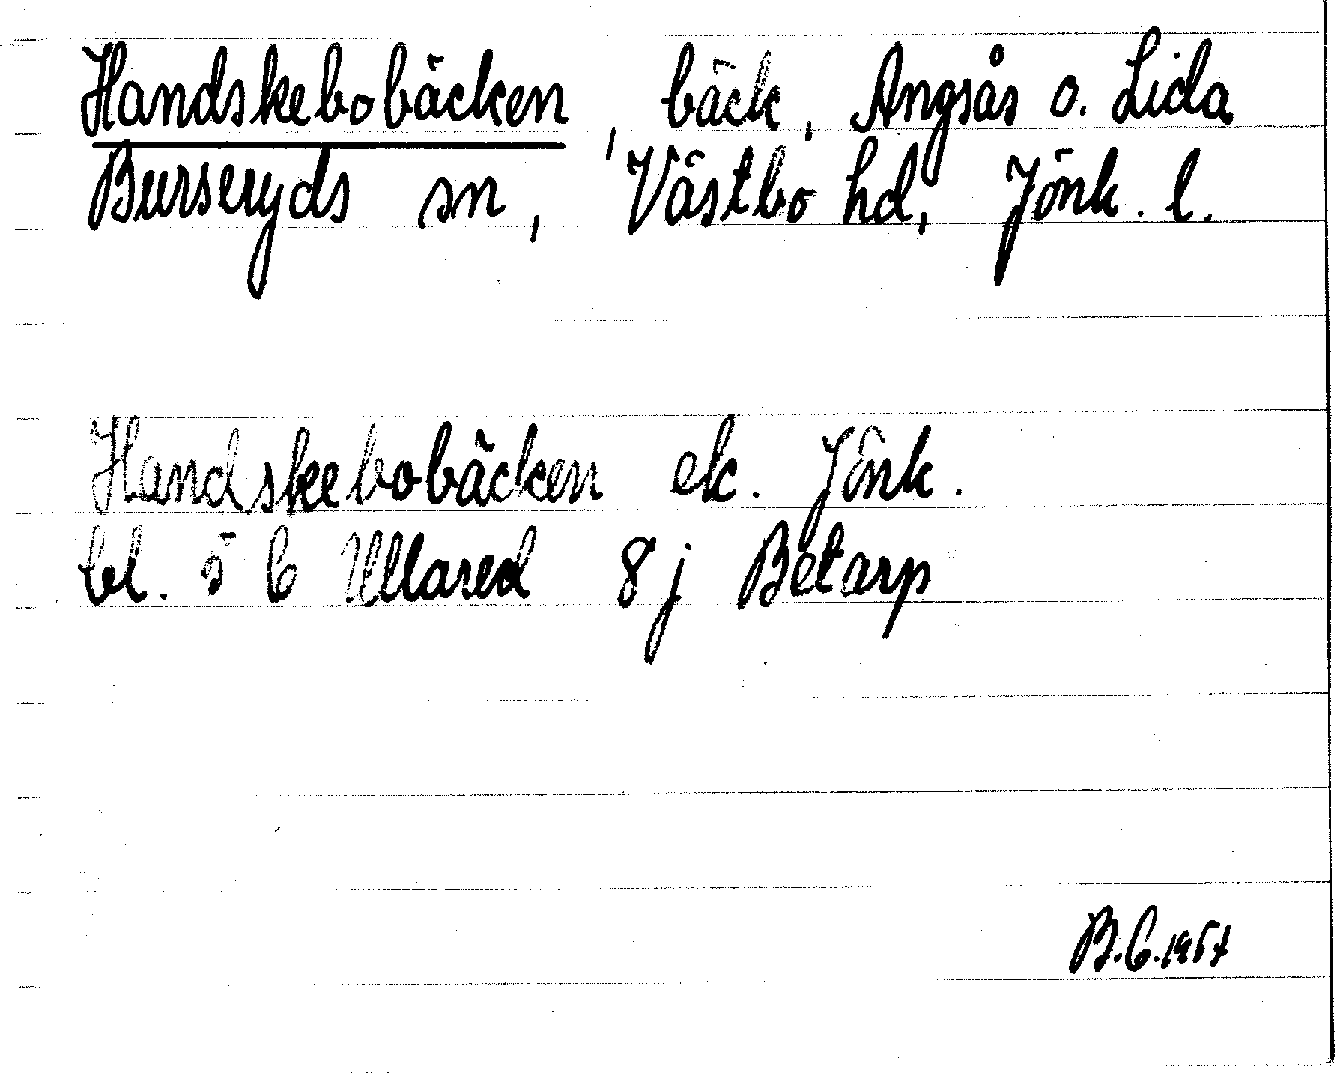 Handskebobäcken, bäck, Angsås o. Lida,
Burseryds sn, Västbo hd, Jönk. l.
Handskebobäcken ek. Jönk.
bl. 5 C Ullared 8 j Betarp
B.C. 1957